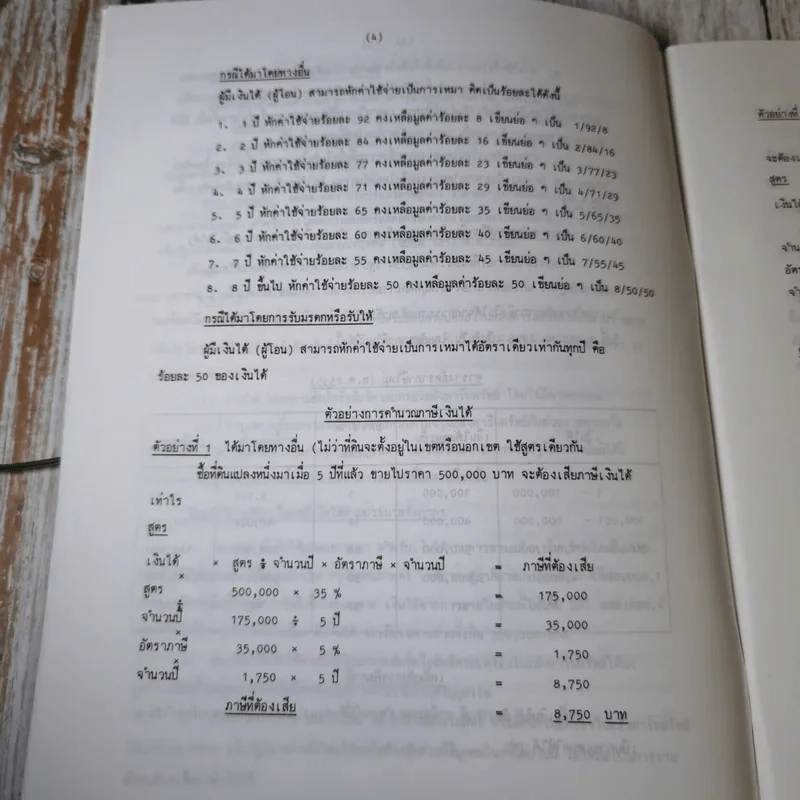 (4)
กรณีได้มาโดยทางอื่น
ผู้มีเงินได้ (ผู้โอน) สามารถหักค่าใช้จ่ายเป็นการเหมา คิดเป็นร้อยละได้ดังนี้
1. 1 ปี หักค่าใช้จ่ายร้อยละ 92 คงเหลือมูลค่าร้อยละ 8 เขียนย่อ ๆ เป็น 1/92/8
2. 2 ปี หักค่าใช้จ่ายร้อยละ 84 คงเหลือมูลค่าร้อยละ 16 เขียนย่อ ๆ เป็น 2/84/16
3. 3 ปี หักค่าใช้จ่ายร้อยละ 77 คงเหลือมูลค่าร้อยละ 23 เขียนย่อ ๆ เป็น 3/77/23
4. 4 ปี หักค่าใช้จ่ายร้อยละ 71 คงเหลือมูลค่าร้อยละ 29 เขียนย่อ ๆ เป็น 4/71/29
5. 5 ปี หักค่าใช้จ่ายร้อยละ 65 คงเหลือมูลค่าร้อยละ 35 เขียนย่อ ๆ เป็น 5/65/35
6. 6 ปี หักค่าใช้จ่ายร้อยละ 60 คงเหลือมูลค่าร้อยละ 40 เขียนย่อ ๆ เป็น 6/60/40
7. 7 ปี หักค่าใช้จ่ายร้อยละ 55 คงเหลือมูลค่าร้อยละ 45 เขียนย่อ ๆ เป็น 7/55/45
8. 8 ปี ขึ้นไป หักค่าใช้จ่ายร้อยละ 50 คงเหลือมูลค่าร้อยละ 50 เขียนย่อ ๆ เป็น 8/50/50
กรณีได้มาโดยการรับมรดกหรือรับให้
ผู้มีเงินได้ (ผู้โอน) สามารถหักค่าใช้จ่ายเป็นการเหมาได้อัตราเดียวเท่ากันทุกปี คือ
ร้อยละ 50 ของเงินได้
ตัวอย่างการคำนวณภาษีเงินได้
ตัวอย่างที่ 1 ได้มาโดยทางอื่น (ไม่ว่าที่ดินจะตั้งอยู่ในเขตหรือนอกเขต ใช้สูตรเดียวกัน
ซื้อที่ดินแปลงหนึ่งมาเมื่อ 5 ปีที่แล้ว ขายไปราคา 500,000 บาท จะต้องเสียภาษีเงินได้
เท่าไร
สูตร
เงินได้ × สูตร ÷ จำนวนปี × อัตราภาษี × จำนวนปี = ภาษีที่ต้องเสีย
×
สูตร 500,000 × 35 % = 175,000
÷
จำนวนปี 175,000 ÷ 5 ปี = 35,000
×
อัตราภาษี 35,000 × 5 % = 1,750
×
จำนวนปี 1,750 × 5 ปี = 8,750
ภาษีที่ต้องเสีย = 8,750 บาท
ตัวอย่างที่
จะต้องเ
สูตร
เงินได้
จำนว
อัตร
จำน